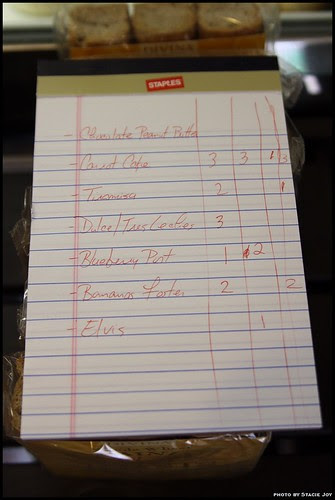 DIVINA
STAPLES
- Chocolate Peanut Butter
- Carrot Cake 3 3 1 3
- Tiramisu 2 1
- Dulce/Tres Leches 3
- Blueberry Port 1 2
- Bananas Foster 2 2
- Elvis 1
PHOTO BY STACIE JOY